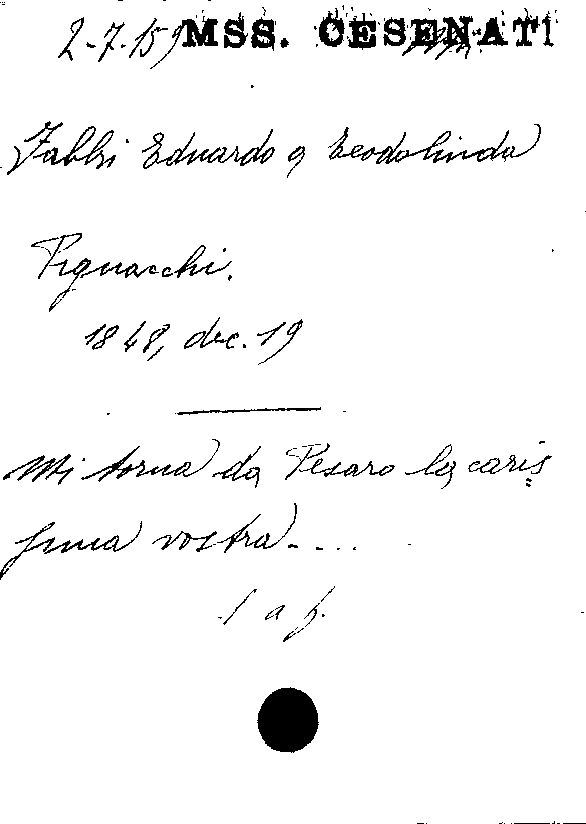 2-7.159 MSS. CESENATI
Fabbri Eduardo a Teodolinda
Pignocchi.
1848, dec. 19
Mi torna da Pesaro la caris=
sima vostra....
1 a f.